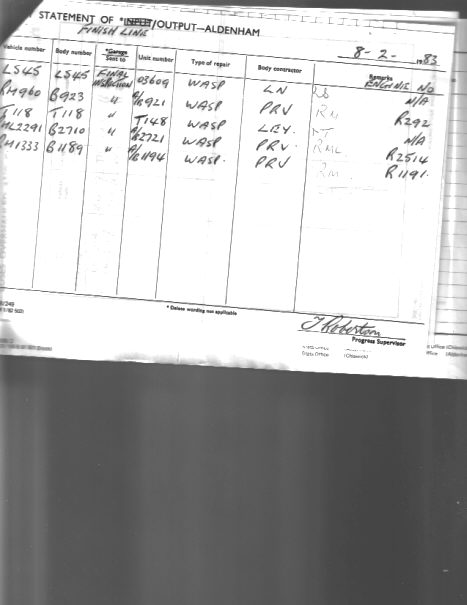 STATEMENT OF *INPUT/OUTPUT—ALDENHAM
FINISH LINE
8-2- 1983
Vehicle number Body number *Garage Sent to Unit number Type of repair Body contractor Remarks ENGINE NO
LS45 LS45 FINAL INSPECTION 03609 WASP LN N/A
RM960 B923 " A/B921 WASP PRV RM R292
T118 T118 " T148 WASP LEY. N/A
RML2291 B2710 " A/B2721 WASP PRV. RML R2514
RM1333 B1189 " A/B1194 WASP. PRV RM R1191
* Delete wording not applicable
T Robertson
Progress Supervisor
Digits Office (Chiswick)